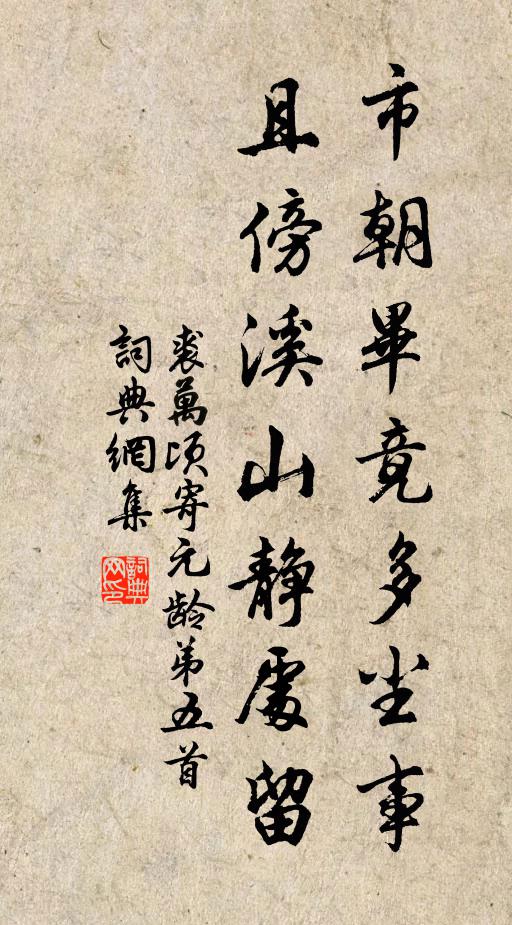 市朝畢竟多尘事
且傍溪山静處留
裘萬頃寄元龄第五首
詞典網集
詞典网印